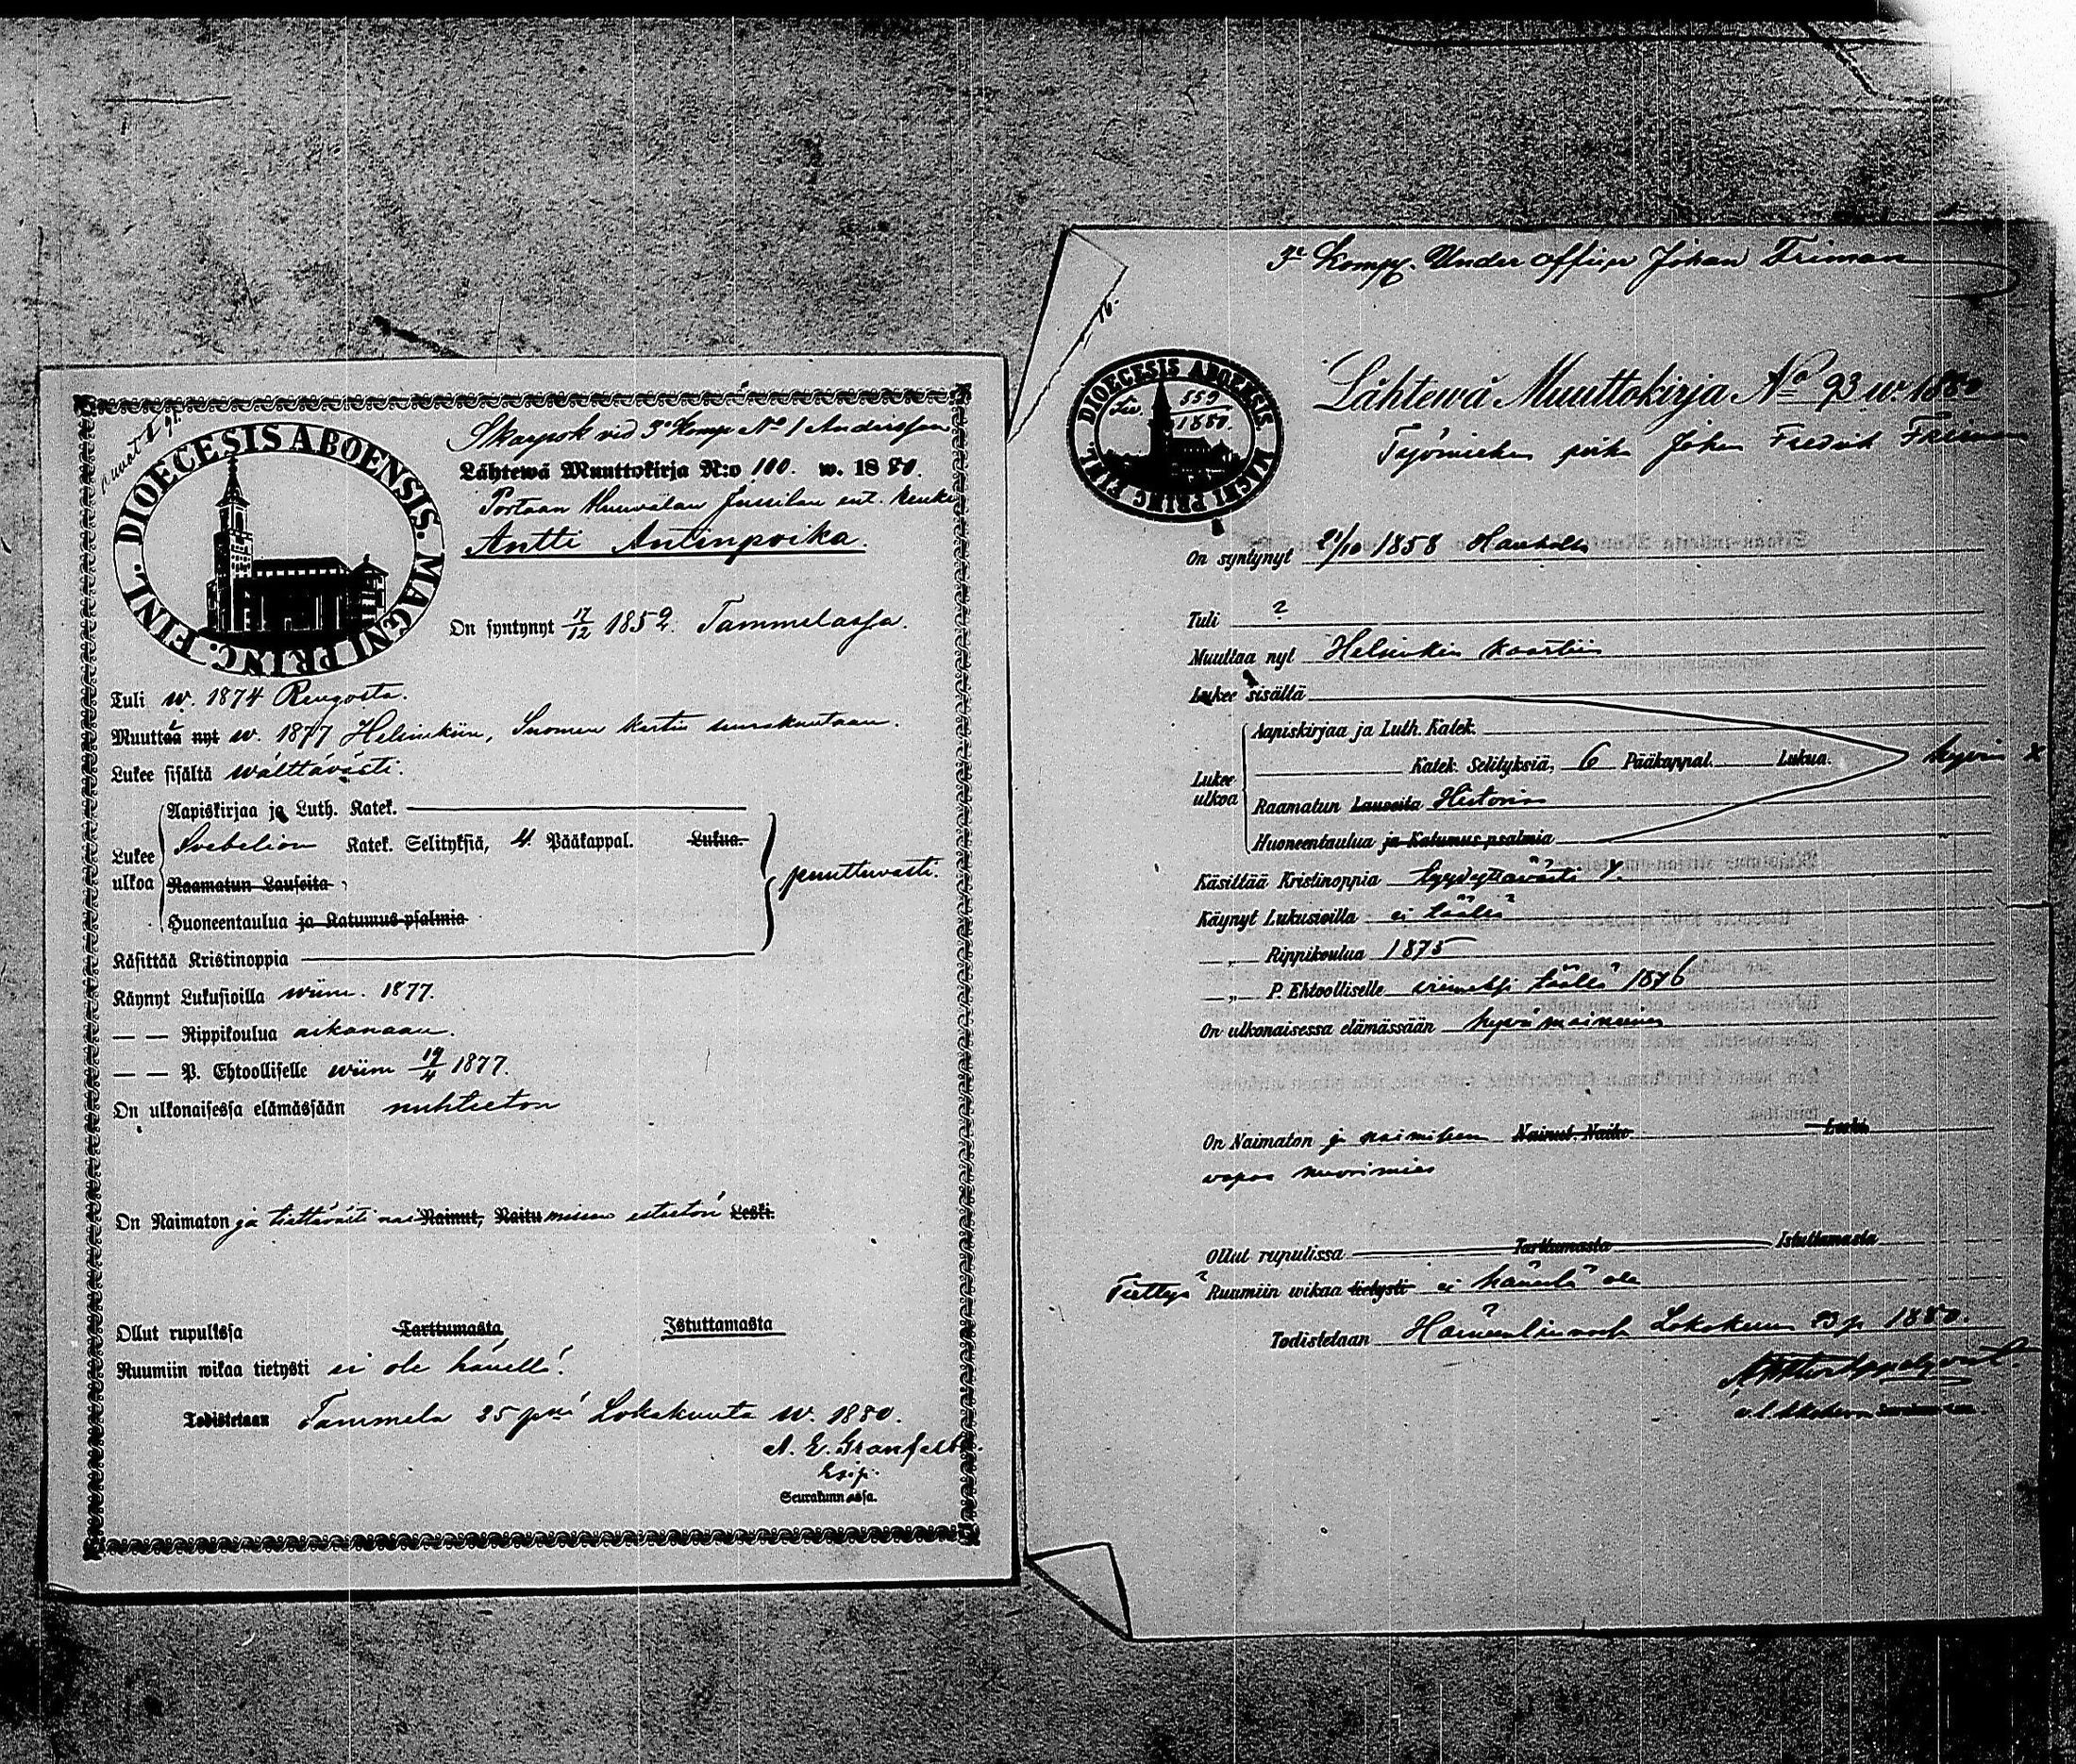 DIOECESIS ABOENSIS. MAGNI PRINC. FINL.
Skarpsk vid 3e Komp No 1 Andersson
Lähtewä Muuttokirja N:o 100. w. 1880.
Portaan Jussilan ent. Renki
Antti Antinpoika.
On syntynyt 17/12 1852. Tammelassa.
Tuli w. 1874 Rengosta.
Muuttaa nyt w. 1877 Helsinkiin, Suomen kartin seurakuntaan.
Lukee sisältä wälttävästi.
Lukee ulkoa
Aapiskirjaa ja Luth. Katek.
Svebelion Katek. Selityksiä, 4 Pääkappal. Lukua.
Raamatun Lauseita
Huoneentaulua ja Katumus-psalmia
puuttuvasti.
Käsittää Kristinoppia
Käynyt Lukusioilla wiim. 1877.
— — Rippikoulua aikanaan.
— — P. Ehtoolliselle wiim 19/4 1877.
On ulkonaisessa elämässään nuhteeton
On Naimaton ja tiettävästi nai Nainut, Naitu miseen esteetön Leski.
Ollut rupulissa Tarttumasta Istuttamasta
Ruumiin wikaa tietysti ei ole hänellä.
Todistetaan Tammela 25 pnä Lokakuuta w. 1880.
A. E. Granfelt
Esip.
Seurakunnassa.
3e Komp. Under officer Johan Friman
DIOECESIS ABOENSIS MAGNI PRINC. FINL.
559
1880.
Lähtewä Muuttokirja No 93 w. 1880
Työmiehen poika Johan Fredrik Friman
On syntynyt 21/10 1858 Hauholla
Tuli ?
Muuttaa nyt Helsinkin kaartiin
Lukee sisältä
Lukee ulkoa
Aapiskirjaa ja Luth. Katek.
Katek. Selityksiä, 6 Pääkappal. Lukua.
Raamatun Lauseita Historia
Huoneentaulua ja Katumus-psalmia
hyvin
Käsittää Kristinoppia tyydyttävästi
Käynyt Lukusioilla ei täällä
— „ — Rippikoulua 1875
— „ — P. Ehtoolliselle viimeksi täällä 1876
On ulkonaisessa elämässään hyvämaineinen
On Naimaton ja naimiseen Nainut, Naitu Leski
vapaa nuorimies
Ollut rupulissa Tarttumasta Istuttamasta
Tiettyä Ruumiin wikaa tietysti ei hänellä ole
Todistetaan Hämeenlinnassa Lokakuun 23 p 1880.